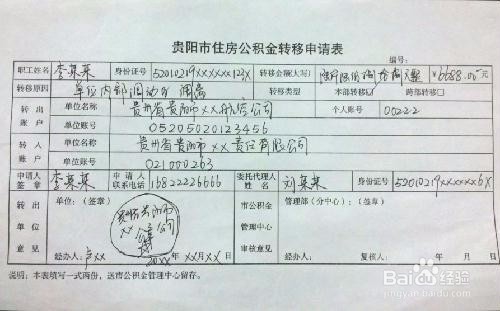 贵阳市住房公积金转移申请表
编号:
职工姓名 李某某 身份证号 52010219XXXXXX123X 转移金额(大写) ¥6688.00元
转移原因 单位内部调动 转移类型 本部转移口 跨部转移口
转出账户 单位名称 贵州省贵阳市XX航空公司 个人账号 00222
单位账号 05205020123456
转入账户 单位名称 贵州省贵阳市XX责任有限公司
单位账号 021000263
申请人签章 李某某 申请人联系电话 16822226666 委托代理人姓名 刘某某 身份证号 52010219XXXXXX6X
转出单位意见 单位:(签章) 市公积金管理中心审核意见 管理部(分中心):(签章)
贵州省贵阳市XX公司
经办人:卢XX 20XX年XX月XX日 经办人: 复核人: 年 月 日
说明:本表填写一式两份,送市公积金管理中心留存。
Baidu 经验
jingyan.baidu.com